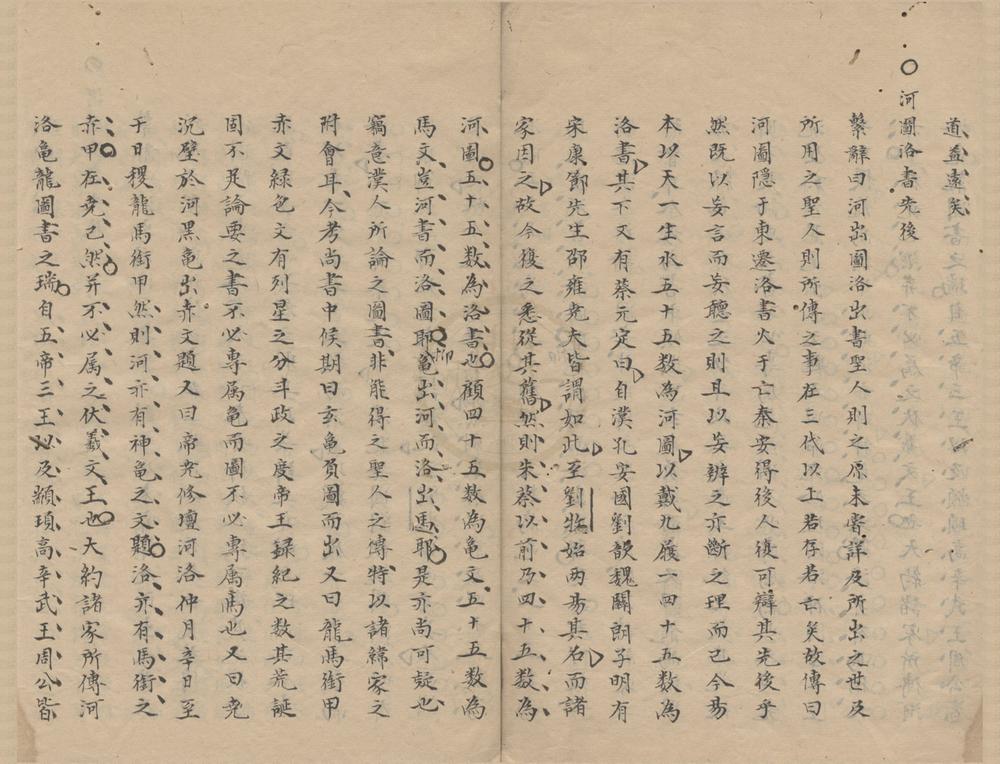 道益遠矣
○河圖洛書先後
繫辭曰河出圖洛出書聖人則之原未嘗詳及所出之世及
所用之聖人則所傳之事在三代以上若存若亡矣故傳曰
河圖隱于東遷洛書火于亡秦安得後人復可辯其先後乎
然既以妄言而妄聽之則且以妄辦之亦斷之理而已今易
本以天一生水五十五數為河圖以戴九履一四十五數為
洛書其下又有蔡元定曰自漢孔安國劉歆魏關朗子明有
宋康節先生邵雍堯夫皆謂如此至劉牧始两易其名而諸
家因之故今復之悉從其舊然則朱蔡以前乃四十五數為
河圖五十五數為洛書也顧四十五數為亀文五十五數為
馬文豈河書而洛圖耶抑亀出河而洛出馬耶是亦尚可疑也
竊意漢人所論之圖書非能得之聖人之傳特以諸緯家之
附會耳今考尚書中候期曰玄亀負圖而出又曰龍馬銜甲
赤文綠色文有列星之分斗政之度帝王録紀之数其荒誕
固不足論要之書不必專属亀而圖不必專属馬也又曰堯
沉璧於河黒亀出赤文題又曰帝尭修壇河洛仲月辛日至
于日稷龍馬銜甲然則河亦有神亀之文題洛亦有馬銜之
赤甲在尭已然并不必属之伏羲文王也大約諸家所傳河
洛亀龍圖書之瑞自五帝三王以及顓頊高辛武王周公皆